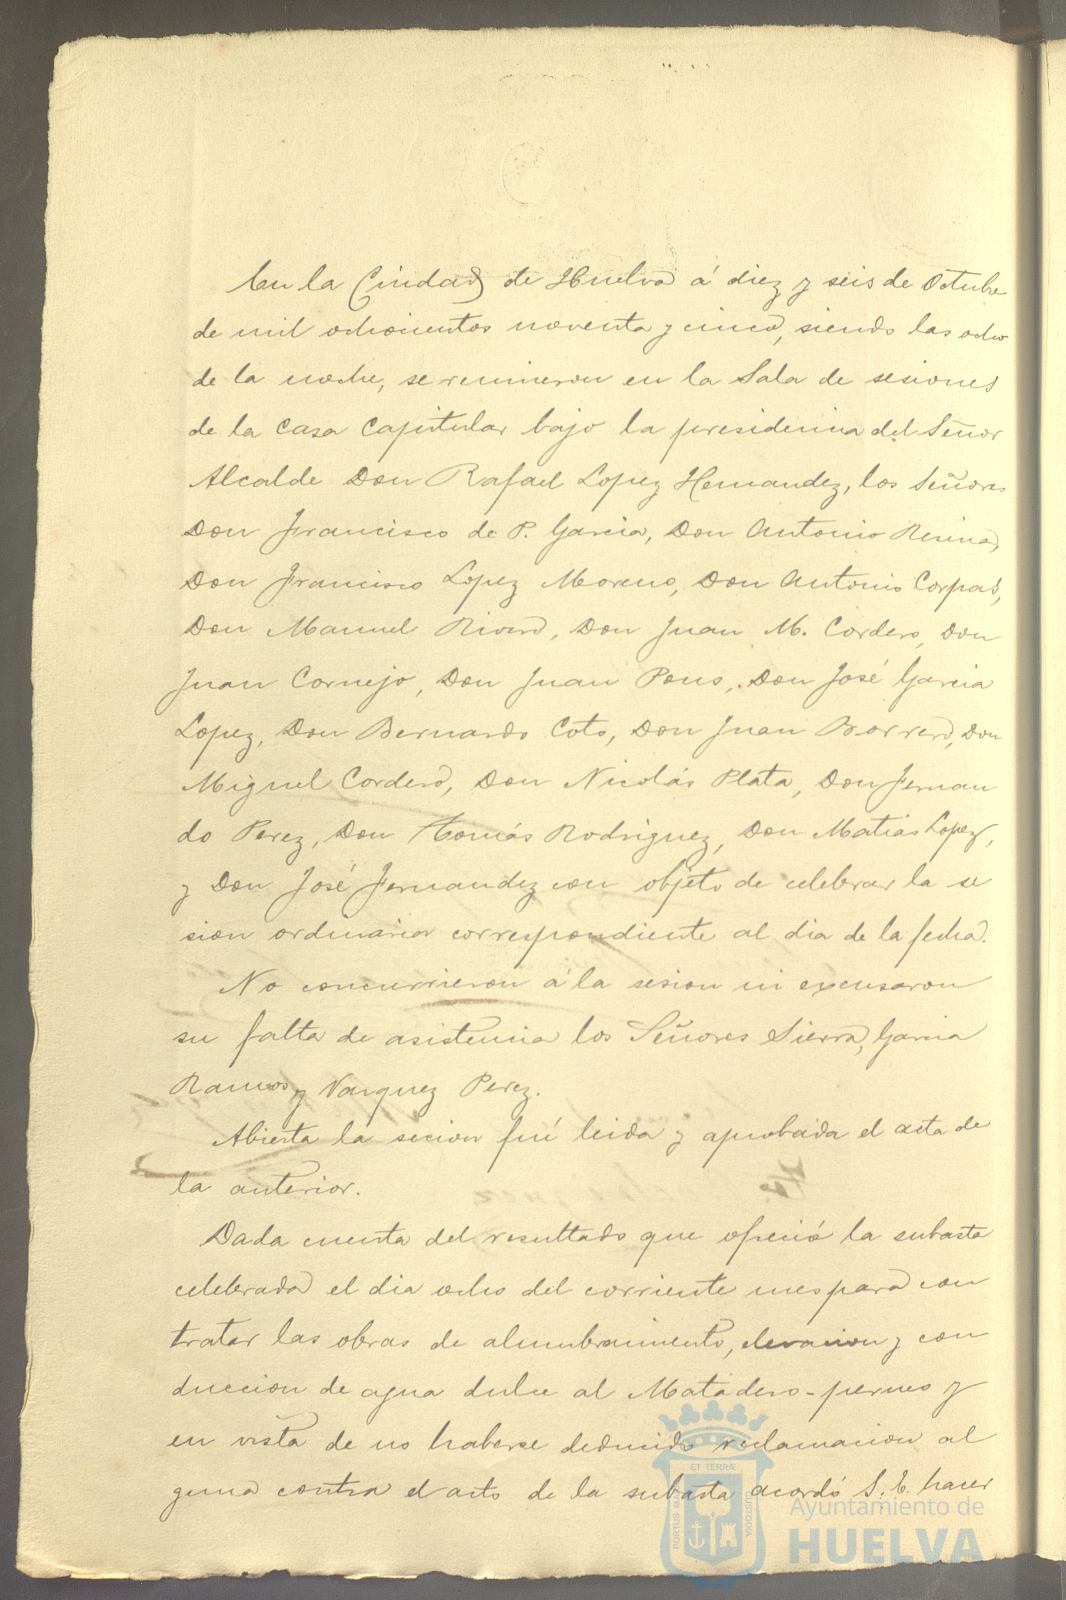 En la Ciudad de Huelva á diez y seis de Octubre
de mil ochocientos noventa y cinco, siendo las ocho
de la noche, se reunieron en la Sala de sesiones
de la Casa Capitular bajo la presidencia del Señor
Alcalde Don Rafael Lopez Hernandez, los Señores
Don Francisco de P. Garcia, Don Antonio Resina,
Don Francisco Lopez Moreno, Don Antonio Corpas,
Don Manuel Rivero, Don Juan M. Cordero, Don
Juan Cornejo, Don Juan Pons, Don José Garcia
Lopez, Don Bernardo Coto, Don Juan Borrero, Don
Miguel Cordero, Don Nicolás Plata, Don Fernan
do Perez, Don Tomás Rodriguez, Don Matias Lopez,
y Don José Fernandez con objeto de celebrar la se
sion ordinaria correspondiente al dia de la fecha.
No concurrieron á la sesion ni excusaron
su falta de asistencia los Señores Sierra, Garcia
Ramos y Vazquez Perez.
Abierta la secion fué leida y aprobada el acta de
la anterior.
Dada cuenta del resultado que ofreció la subasta
celebrada el dia ocho del corriente mes para con
tratar las obras de alumbramiento, elevacion y con
duccion de agua dulce al Matadero-perneo y
en vista de no haberse deducido reclamacion al
guna contra el acto de la subasta acordó S. E. hacer
PORTUS MARIS ET TERRÆ CUSTODIA
Ayuntamiento de
HUELVA